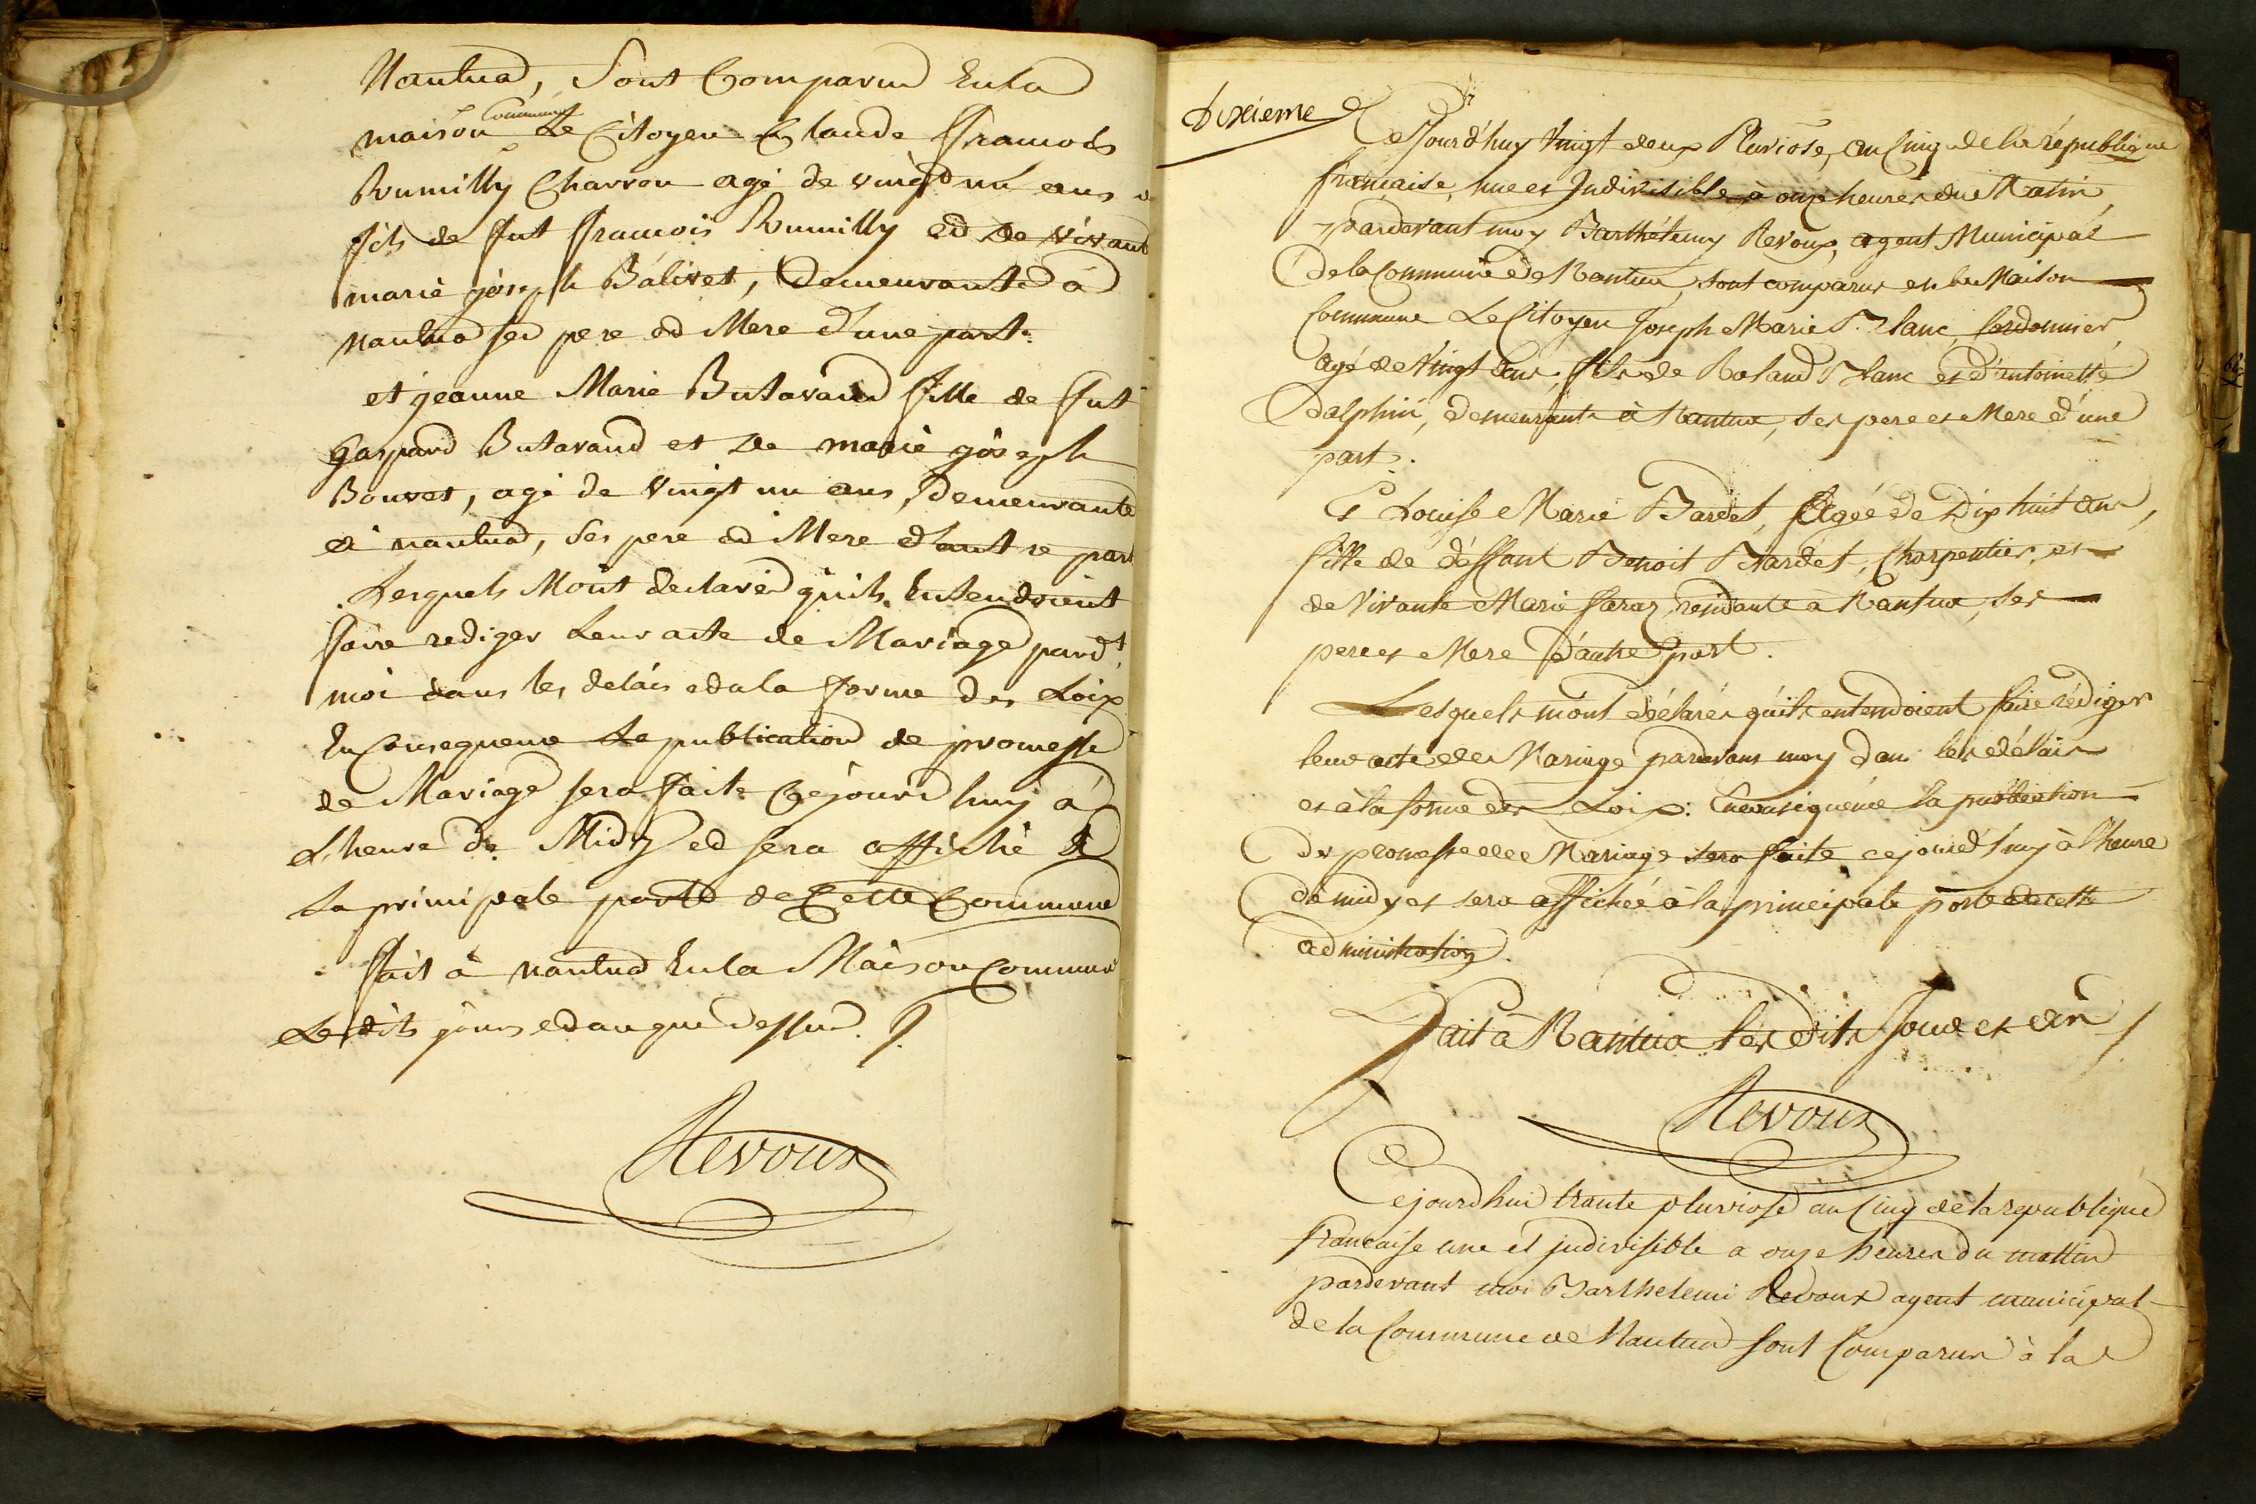 Nantua, Sont Comparus En la
Commune
maison Le Citoyen Claude François
Rumilly Charron agé de vingt un ans
fils de fut François Rumilly et de vivant
marie joseph Balivet, demeurante à
nantua ses pere et Mere d'une part.
et jeanne Marie Butavand fille de fut
Gaspard Butavand et de marie joseph
Bouvet, agé de vingt un ans, demeurante
à nantua, Ses pere et Mere d'autre part
Lesquels M'ont declaré qu'ils Entendoient
faire rediger Leur acte de Mariage pardt
moi dans les delais et a la forme des Loix
En Consequence La publication de promesse
de Mariage sera faite Cejourd'huy à
L'heure de Midy et sera affiché à
La principale porte de Cette Commune
fait à nantua En la Maison Commune
Lesdits jours et an que dessus.
Revoux
dixieme
Cejourd'huy Vingt deux Pluviose, an Cinq de la république
française, une et Indivisible à onze heures du Matin,
pardevant moy Barthélemy Revoux, agent Municipal
De la Commune de Nantua, sont comparus en la Maison
Commune Le Citoyen Joseph Marie Blanc, Cordonnier,
agé de Vingt deux, fils de Roland Blanc et d'antoinette
Dalphin, demeurants à Nantua, ses pere et Mere d'une
part.
Et Louise Marie Bardet, Agée de Dix huit ans,
fille de deffunt Benoit Bardet, Charpentier, et
de Vivante Marie Saraz, résidante à Nantua, ses
pere et Mere D'autre part.
Lesquels m'ont déclarés qu'ils entendoient faire rédiger
leur acte de Mariage pardevant moy dans les délais
et à la forme des Loix: En conséquence la publication
de promesse de Mariage sera faite cejourd'huy à l'heure
de midy et sera affichée à la principale porte de cette
administration.
Fait à Nantua les dits Jour et an
Revoux
Cejourdhui trante pluviose an Cinq de la republique
française une et indivisible a onze heures du mattin
pardevant moi Barthelemi Revoux agent municipal
de la Commune de Nantua sont Comparus à la